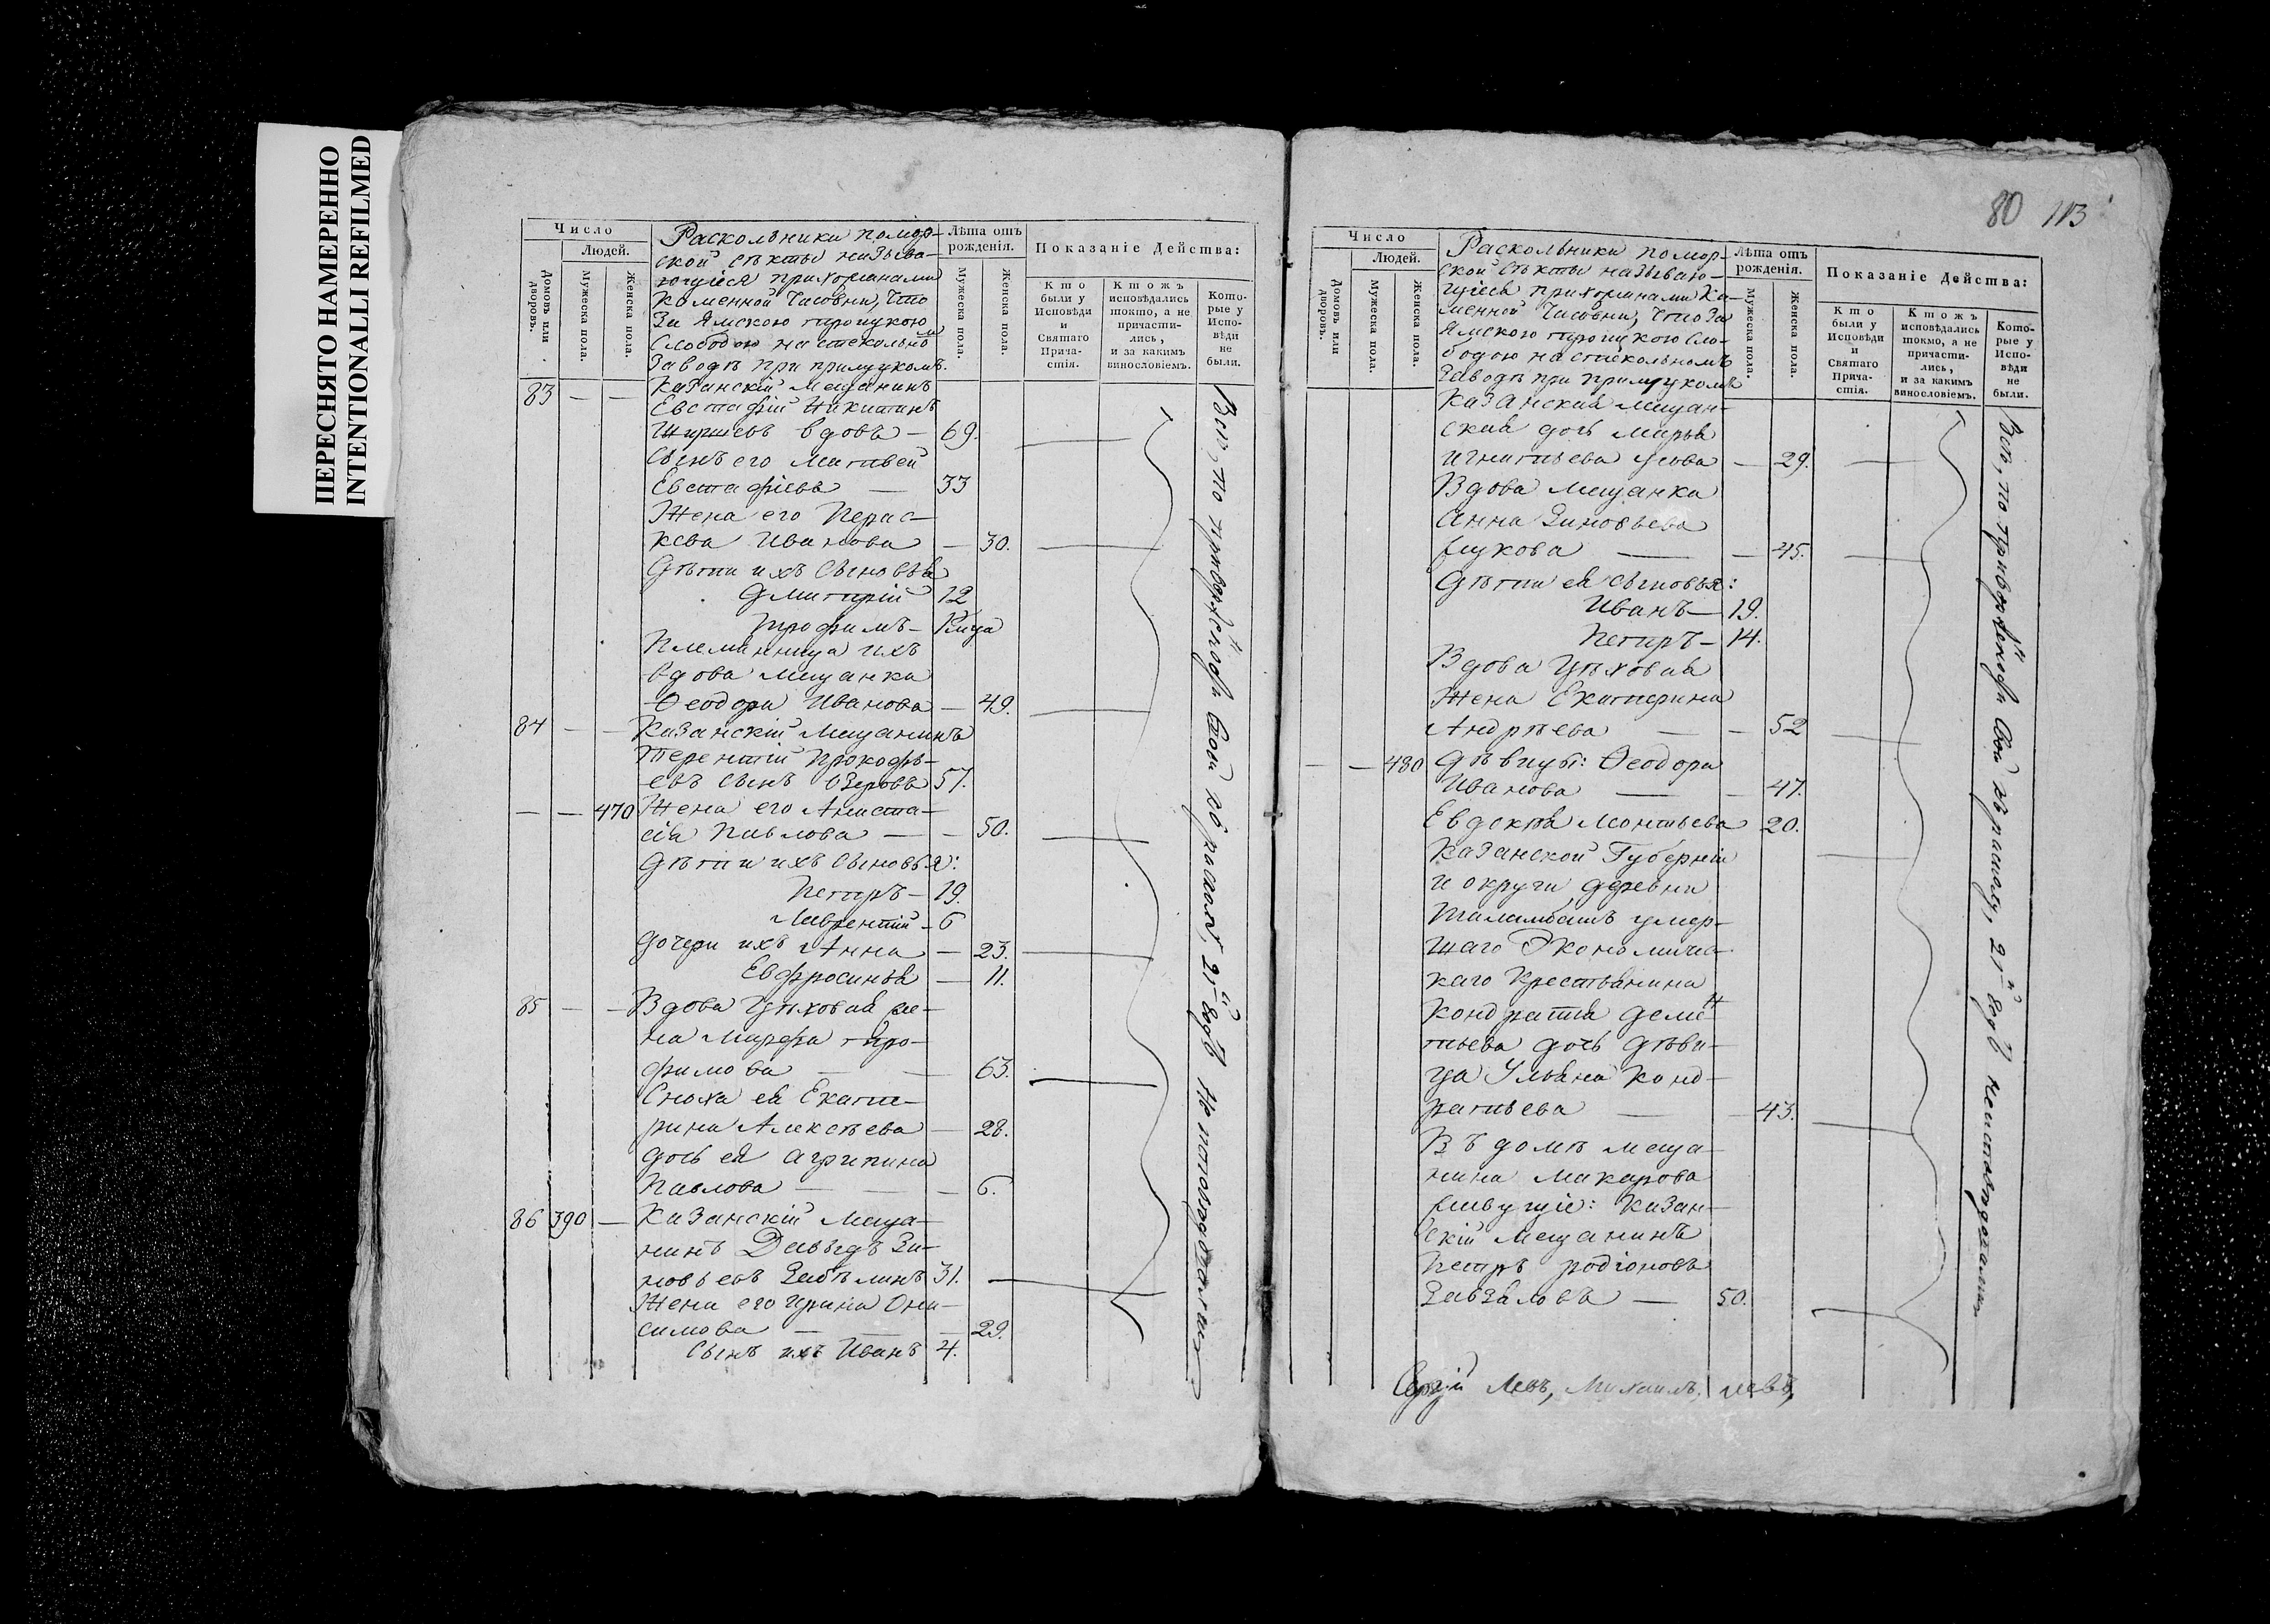 ПЕРЕСНЯТО НАМЕРЕННО
INTENTIONALLI REFILMED
Число
Людей.
Домовъ или дворовъ.
Мужеска пола.
Женска пола.
Раскольники помор-
ской секты называ-
ющiеся прихожанами
каменной Часовни, что
за Ямскою троицкою
Слободою на стекольном
Заводѣ при прилуцкомъ.
Лѣта отъ
рожденія.
Мужеска пола.
Женска пола.
Показаніе Действа:
Кто
были у
Исповѣди
и
Святаго
Прича-
стія.
Ктожъ
исповѣдались
токмо, а не
причасти-
лись,
и за какимъ
винословіемъ.
Кото-
рые у
Испо-
вѣди
не
были.
83 — — Казанскій Мещанинъ
Евстафій Никитинъ
вдовъ — 69.
Сынъ его Матвей
Евстафіевъ — 33
Жена его Перас-
кева Иванова — 30.
Дѣти ихъ Сыновья
Дмитрій 12
Трофимъ —
Племянница ихъ
вдова мещанка
Ѳеодора Иванова — 49.
84 — — Казанскій Мещанинъ
Терентій Прокофь-
евъ Сынъ Озеровъ 57.
— — 470 Жена его Анаста-
сія Павлова — — 50.
Дѣти ихъ Сыновья:
Петръ — 19.
Лаврентій — 6
дочери ихъ Анна — 23.
Евфросинья — 11.
85 — — Вдова Цѣховая же-
на Марфа тро-
фимова — — 63.
Сноха ея Екате-
рина Алексѣева — 28.
дочь ея агрипина
Павлова — — — 6.
86 390 — Казанскій Меща-
нинъ Давыдъ Зи-
новьевъ Забѣлинъ 31.
Жена его Ирина Они-
симова — — — 29.
Сынъ ихъ Иванъ 4.
80 113
Число
Людей.
Домовъ или дворовъ.
Мужеска пола.
Женска пола.
Раскольники помор-
ской секты называю-
щіесь прихожанами Ка-
менной Часовни, что за
Ямскою троицкою Сло-
бодою на стекольномъ
Заводѣ при прилуцкомъ
Лѣта отъ
рожденія.
Мужеска пола.
Женска пола.
Показаніе Действа:
Кто
были у
Исповѣди
и
Святаго
Прича-
стія.
Ктожъ
исповѣдались
токмо, а не
причасти-
лись,
и за какимъ
винословіемъ.
Кото-
рые у
Испо-
вѣди
не
были.
Казанская мещан-
ская дочь Марья
игнатьева — 29.
Вдова мещанка
Анна Зиновьева
— — 45.
Дѣти ея сыновья:
Иванъ — 19.
Петръ — 14.
Вдова Цѣховая
Жена Екатерина
Андрѣева — — 52
— — 480 Дѣвицы: Ѳеодора
Иванова — — 47.
Евдокѣя Леонтьева 20.
Казанской Губерніи
и округи деревни
умер-
шаго Экономичес-
каго Крестьянина
Кондратія демен-
тьева дочь дѣви-
ца Ульяна Конд-
ратьева — — 43.
Въ домѣ меща-
нина Макарова
живущіе: Казан-
скій Мещанинъ
Петръ родіоновъ
— 50.